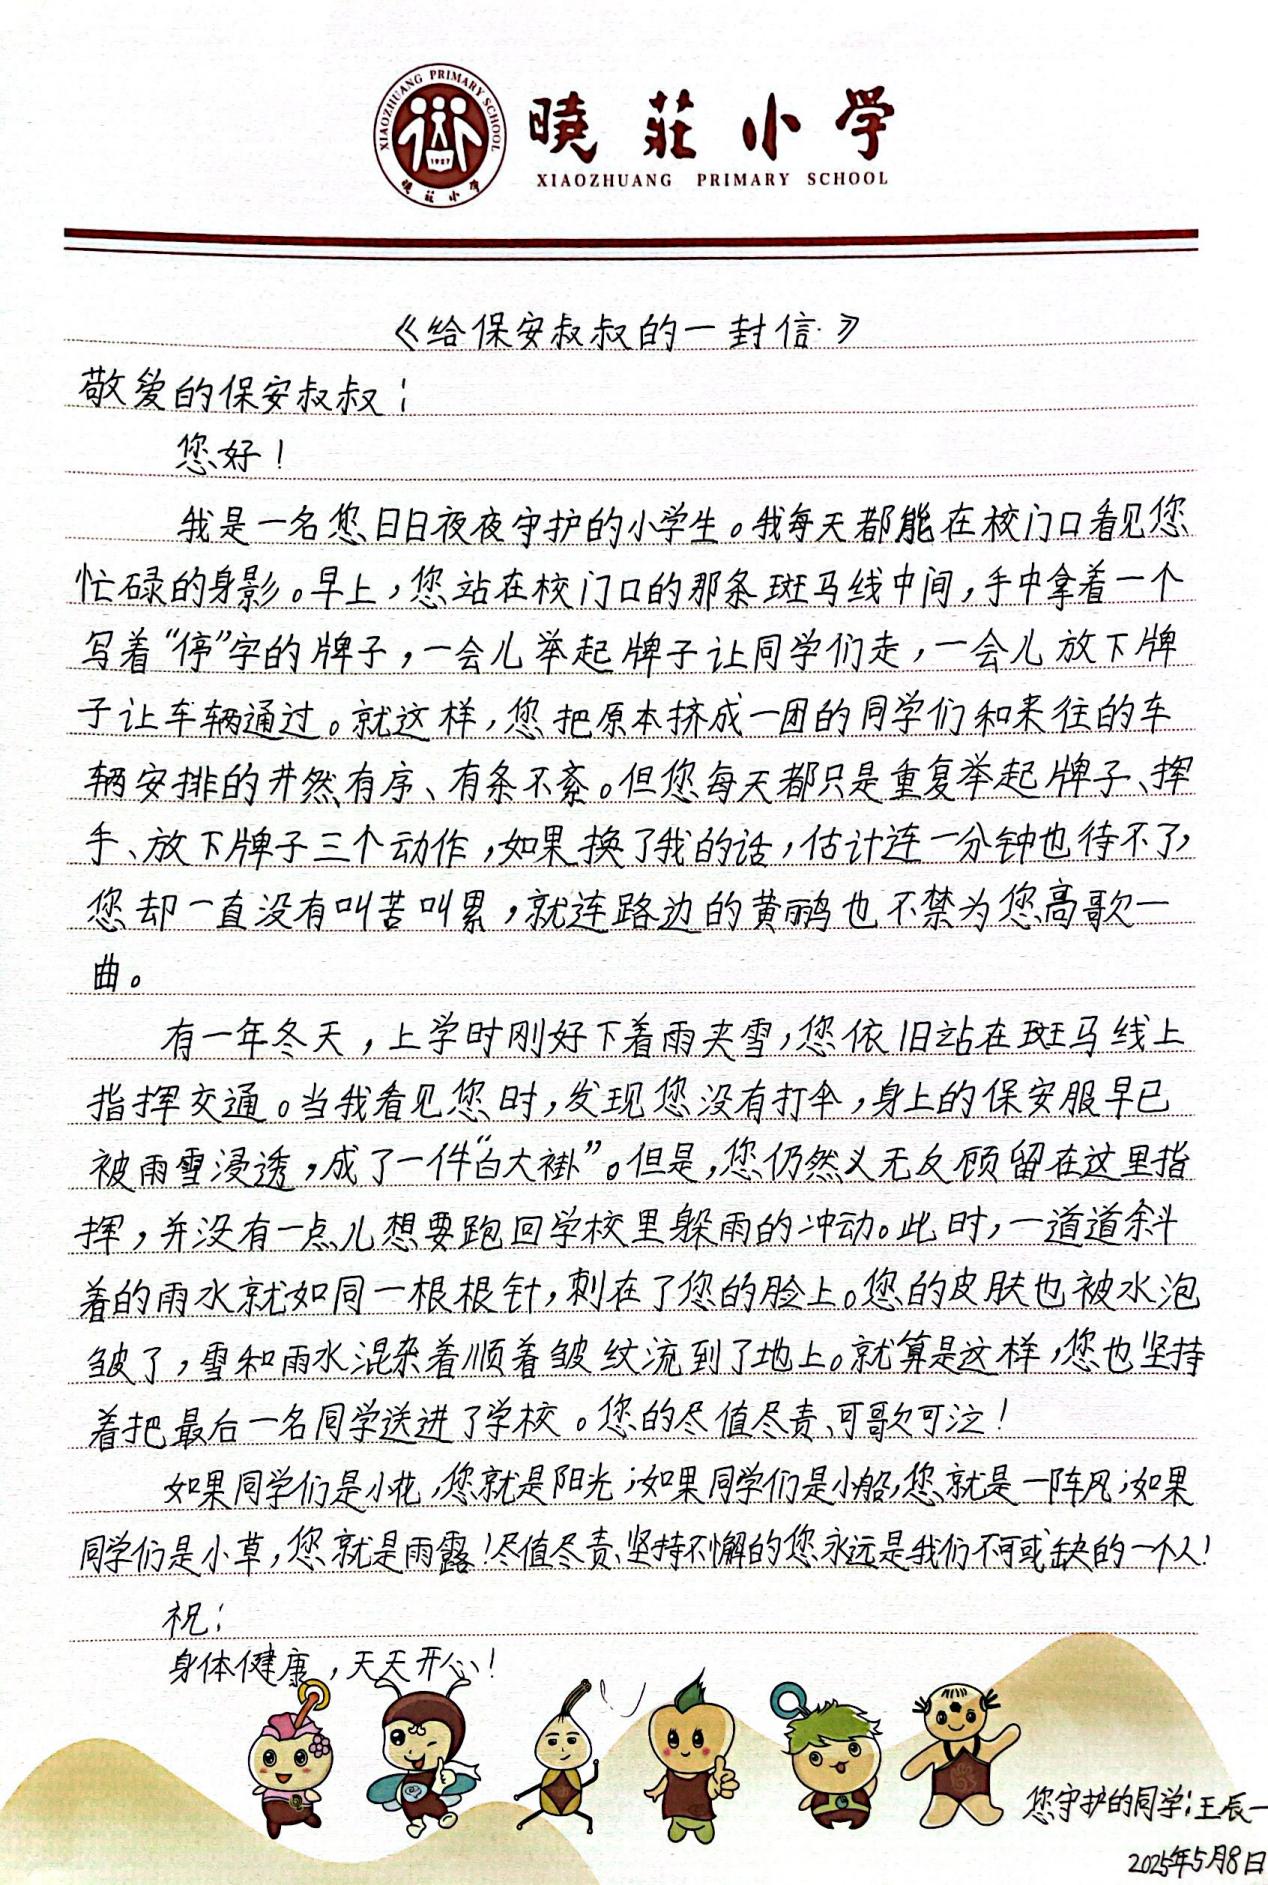 XIAOZHUANG PRIMARY SCHOOL
1927
曉莊小学
曉莊小学
XIAOZHUANG PRIMARY SCHOOL
《给保安叔叔的一封信》
敬爱的保安叔叔：
您好！
我是一名您日日夜夜守护的小学生。我每天都能在校门口看见您
忙碌的身影。早上，您站在校门口的那条斑马线中间，手中拿着一个
写着“停”字的牌子，一会儿举起牌子让同学们走，一会儿放下牌
子让车辆通过。就这样，您把原本挤成一团的同学们和来往的车
辆安排的井然有序、有条不紊。但您每天都只是重复举起牌子、挥
手、放下牌子三个动作，如果换了我的话，估计连一分钟也待不了，
您却一直没有叫苦叫累，就连路边的黄鹂也不禁为您高歌一
曲。
有一年冬天，上学时刚好下着雨夹雪，您依旧站在斑马线上
指挥交通。当我看见您时，发现您没有打伞，身上的保安服早已
被雨雪浸透，成了一件“白大褂”。但是，您仍然义无反顾留在这里指
挥，并没有一点儿想要跑回学校里躲雨的冲动。此时，一道道斜
着的雨水就如同一根根针，刺在了您的脸上。您的皮肤也被水泡
皱了，雪和雨水混杂着顺着皱纹流到了地上。就算是这样，您也坚持
着把最后一名同学送进了学校。您的尽值尽责、可歌可泣！
如果同学们是小花，您就是阳光；如果同学们是小船，您就是一阵风；如果
同学们是小草，您就是雨露！尽值尽责、坚持不懈的您永远是我们不可或缺的一个人！
祝：
身体健康，天天开心！
您守护的同学：王辰一
2025年5月8日